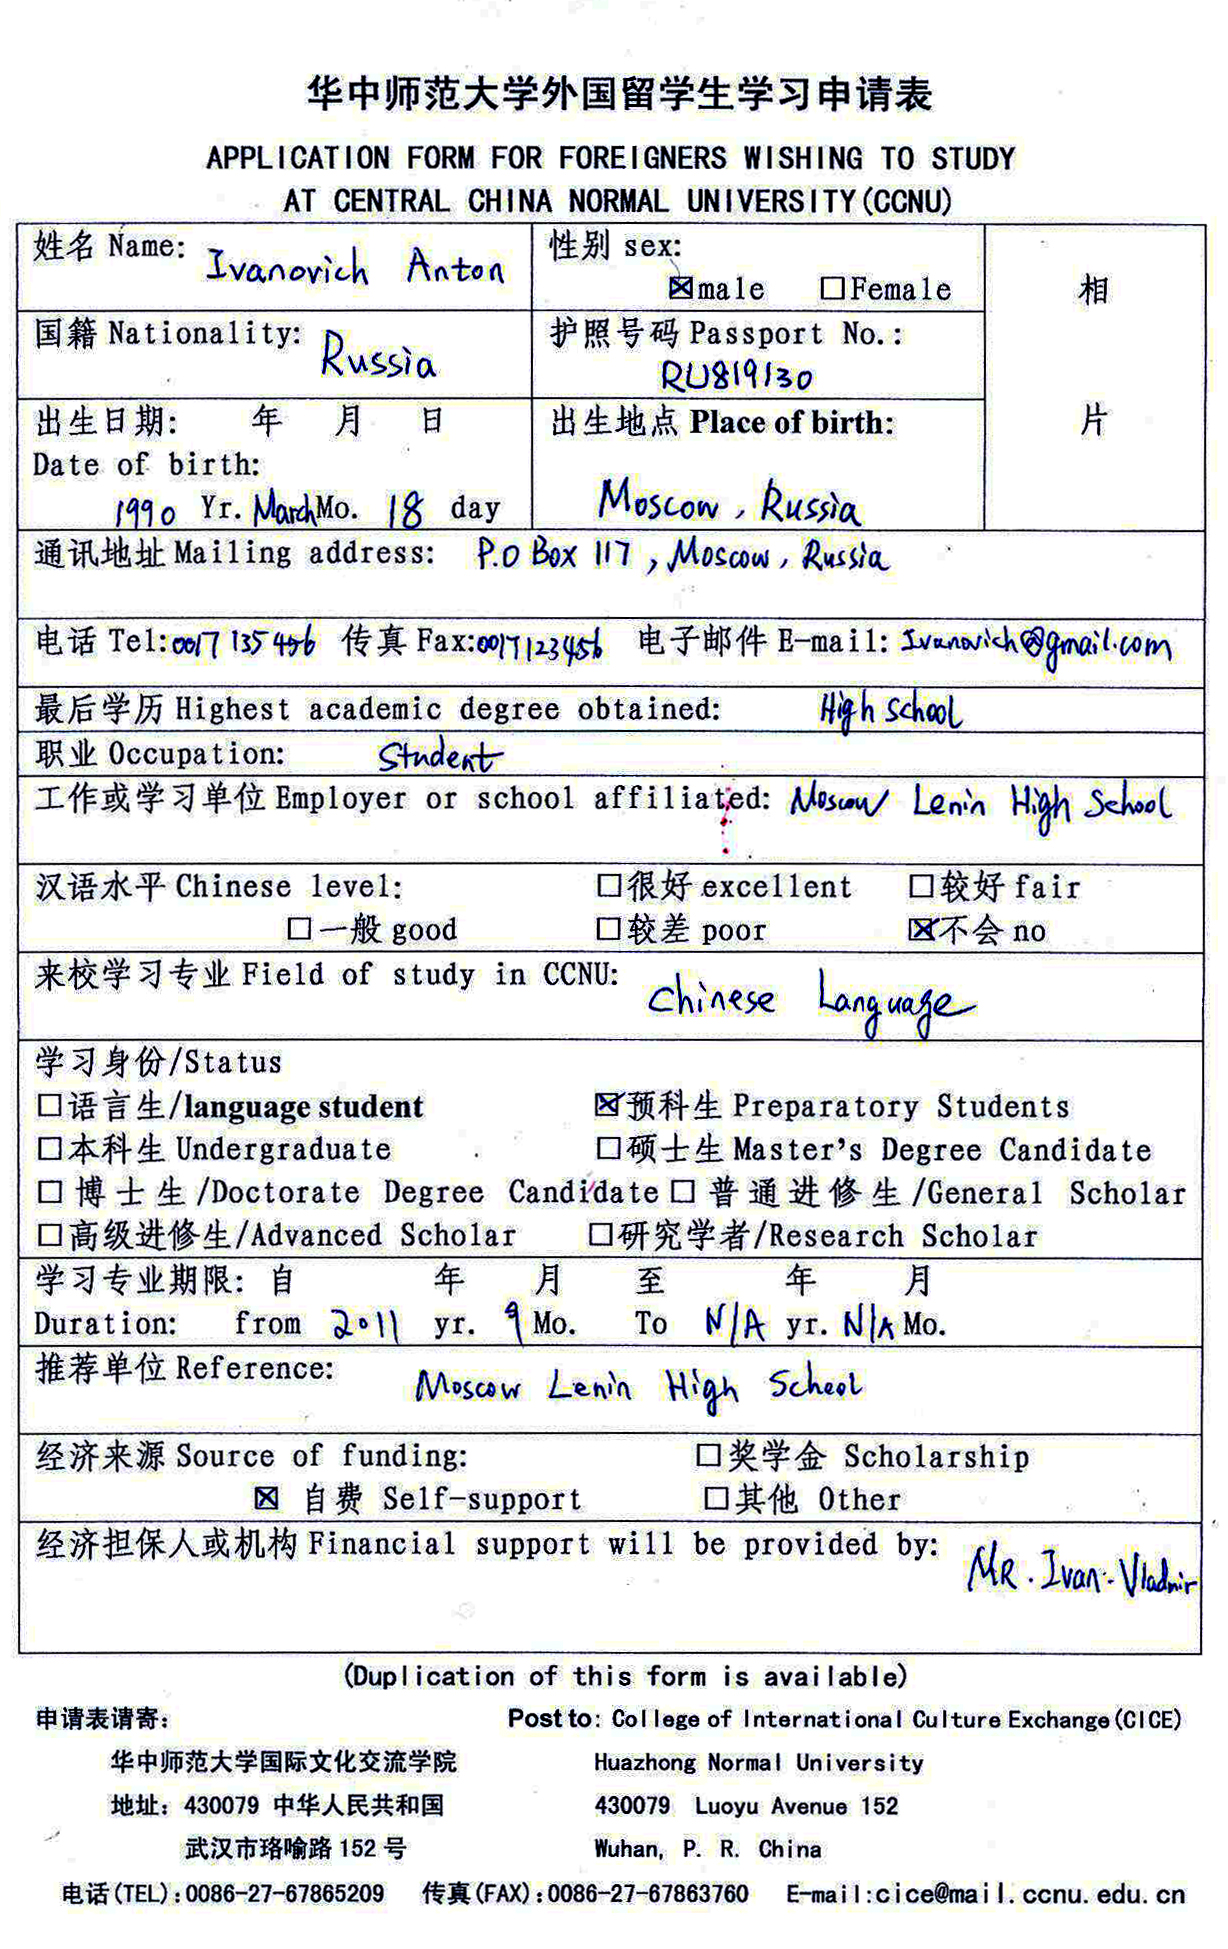 华中师范大学外国留学生学习申请表
APPLICATION FORM FOR FOREIGNERS WISHING TO STUDY
AT CENTRAL CHINA NORMAL UNIVERSITY(CCNU)
姓名 Name: Ivanovich Anton
性别 sex:
☒male □Female
相
片
国籍 Nationality: Russia
护照号码 Passport No.:
RU819130
出生日期: 年 月 日
Date of birth:
1990 Yr. March Mo. 18 day
出生地点 Place of birth:
Moscow, Russia
通讯地址 Mailing address: P.O Box 117, Moscow, Russia
电话 Tel:0017 135456 传真 Fax:0017123456 电子邮件 E-mail: Ivanovich@gmail.com
最后学历 Highest academic degree obtained: High school
职业 Occupation: Student
工作或学习单位 Employer or school affiliated: Moscow Lenin High School
汉语水平 Chinese level: □很好 excellent □较好 fair
□一般 good □较差 poor ☒不会 no
来校学习专业 Field of study in CCNU: Chinese Language
学习身份/Status
□语言生/language student ☒预科生 Preparatory Students
□本科生 Undergraduate □硕士生 Master's Degree Candidate
□博士生/Doctorate Degree Candidate □普通进修生/General Scholar
□高级进修生/Advanced Scholar □研究学者/Research Scholar
学习专业期限: 自 年 月 至 年 月
Duration: from 2011 yr. 9 Mo. To N/A yr. N/A Mo.
推荐单位 Reference: Moscow Lenin High School
经济来源 Source of funding: □奖学金 Scholarship
☒ 自费 Self-support □其他 Other
经济担保人或机构 Financial support will be provided by: MR. Ivan. Vladmir
(Duplication of this form is available)
申请表请寄: Post to: College of International Culture Exchange(CICE)
华中师范大学国际文化交流学院 Huazhong Normal University
地址: 430079 中华人民共和国 430079 Luoyu Avenue 152
武汉市珞喻路 152 号 Wuhan, P. R. China
电话(TEL):0086-27-67865209 传真(FAX):0086-27-67863760 E-mail:cice@mail.ccnu.edu.cn